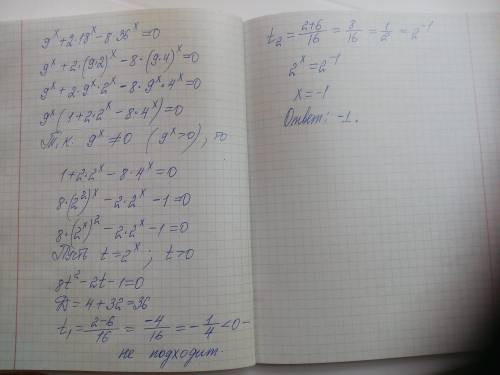 9ˣ+2·18ˣ-8·36ˣ=0
9ˣ+2·(9·2)ˣ-8·(9·4)ˣ=0
9ˣ+2·9ˣ·2ˣ-8·9ˣ·4ˣ=0
9ˣ(1+2·2ˣ-8·4ˣ)=0
Т.к. 9ˣ≠0 (9ˣ>0), то
1+2·2ˣ-8·4ˣ=0
8·(2²)ˣ-2·2ˣ-1=0
8·(2ˣ)²-2·2ˣ-1=0
Пусть t=2ˣ; t>0
8t²-2t-1=0
D=4+32=36
t₁=(2-6)/16=-4/16=-1/4<0-
не подходит.
t₂=(2+6)/16=8/16=1/2=2⁻¹
2ˣ=2⁻¹
x=-1
Ответ: -1.